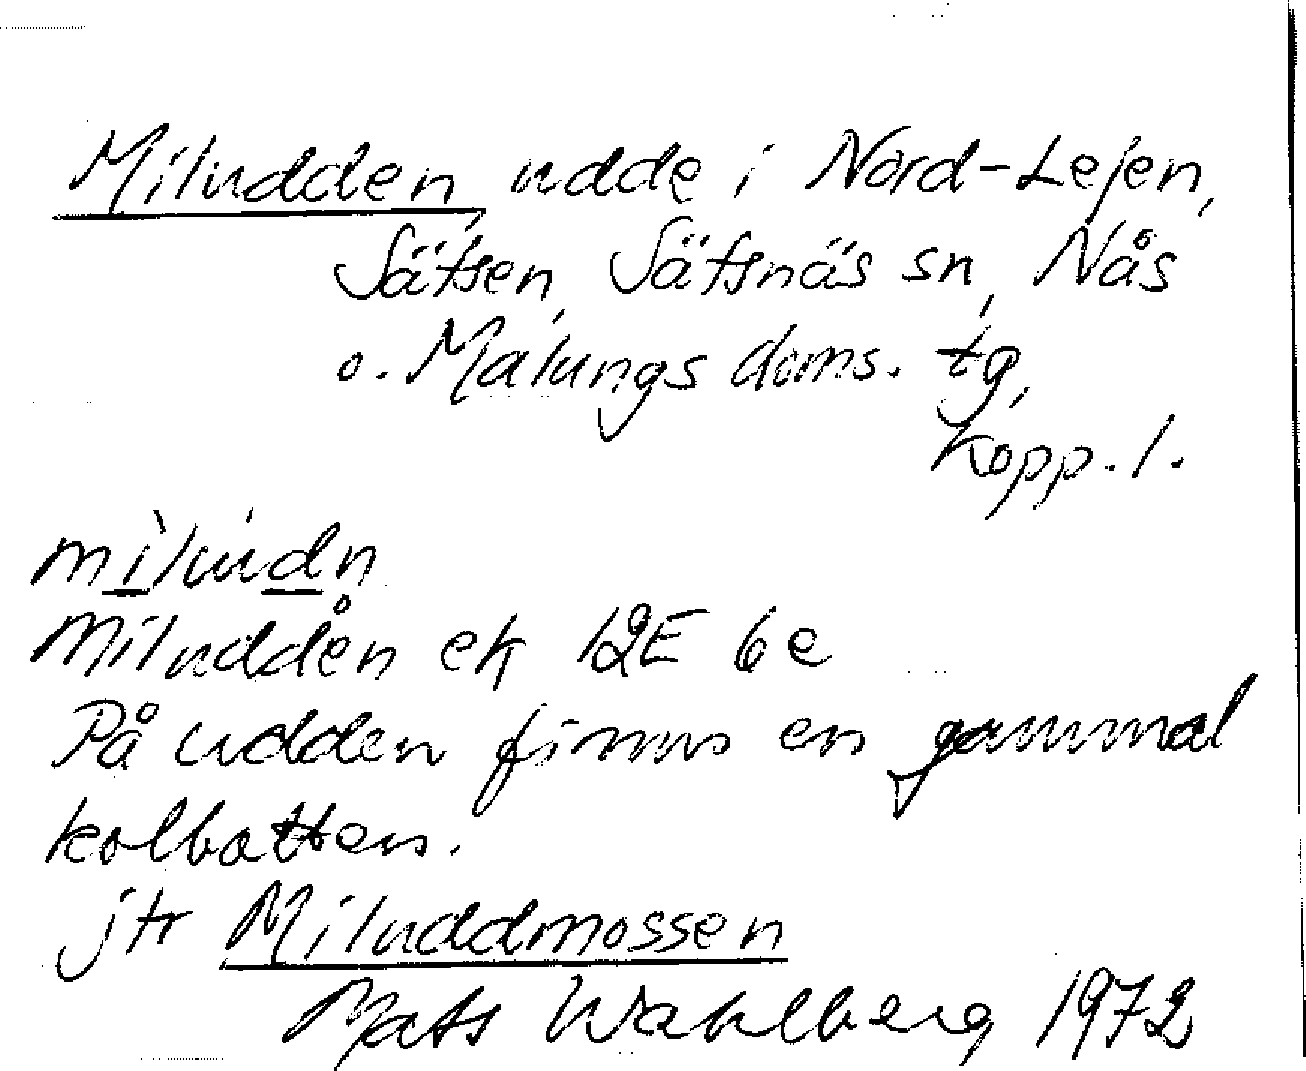 Miludden, udde i Nord-Lejen,
Sätsen, Sätsnäs sn, Nås
o. Malungs doms. tg,
Kopp. l.
mìlùdn
Miluddån ek 12E 6e
På udden finns en gammal
kolbotten.
jfr Miluddmossen
Mats Wahlberg 1972